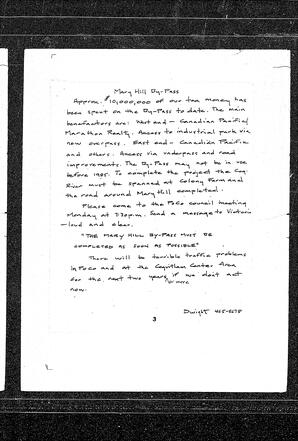 Mary Hill By-Pass
Approx. $10,000,000 of our tax money has
been spent on the By-Pass to date. The main
benefactors are: West end - Canadian Pacific/
Marathon Realty. Access to industrial park via
new overpass. East end - Canadian Pacific
and others. Access via underpass and road
improvements. The By-Pass may not be in use
before 1985. To complete the project the Coq.
River must be spanned at Colony Farm and
the road around Mary Hill completed.
Please come to the PoCo council meeting
Monday at 7:30 p.m. Send a message to Victoria
- loud and clear.
"THE MARY HILL BY-PASS MUST BE
COMPLETED AS SOON AS POSSIBLE"
There will be terrible traffic problems
in PoCo and at the Coquitlam Center Area
for the next two years or more if we don't act
now.
Dwight
3